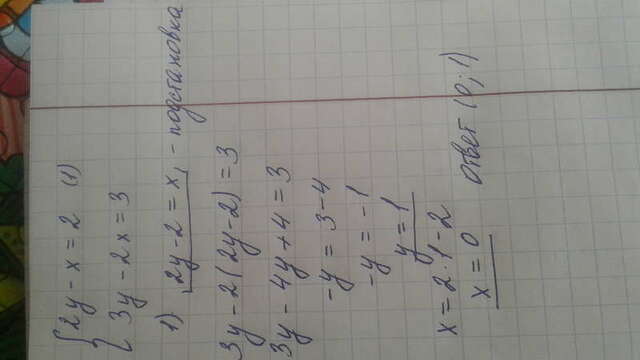 {2y - x = 2 (1)
3y - 2x = 3
1) 2y - 2 = x, - подстановка
3y - 2(2y - 2) = 3
3y - 4y + 4 = 3
-y = 3 - 4
-y = -1
y = 1
x = 2 · 1 - 2
x = 0 ответ (0; 1)